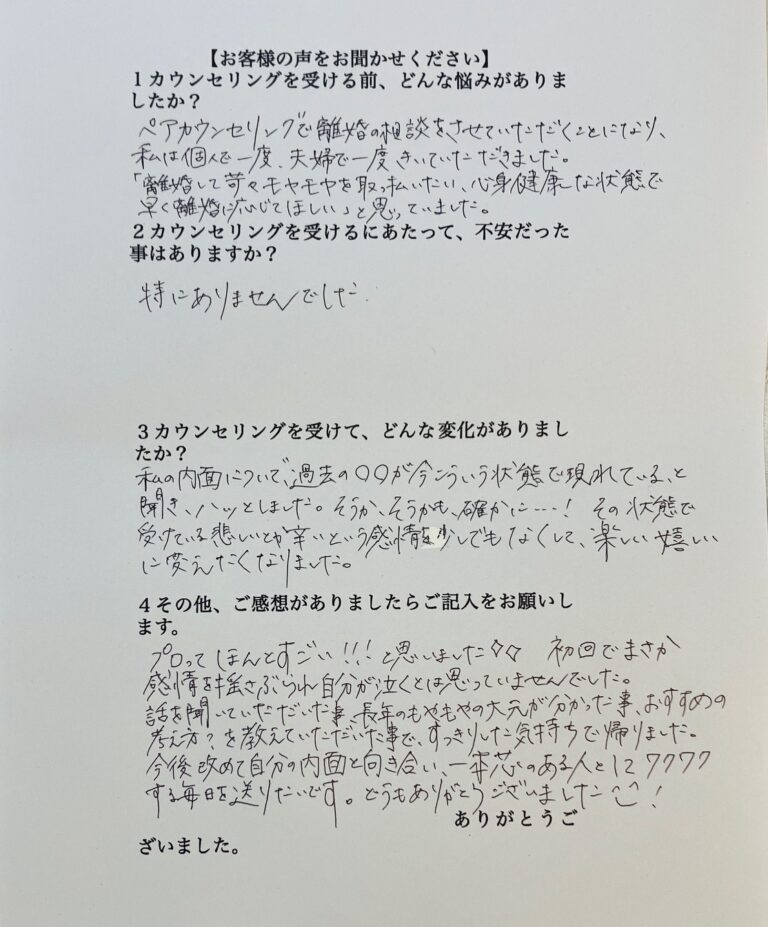 【お客様の声をお聞かせください】
１カウンセリングを受ける前、どんな悩みがありま
したか？
ペアカウンセリングで離婚の相談をさせていただくことになり、
私は個人で一度、夫婦で一度、きいていただきました。
「離婚して苛々モヤモヤを取っ払いたい、心身健康な状態で
早く離婚に応じてほしい」と思っていました。
２カウンセリングを受けるにあたって、不安だった
事はありますか？
特にありませんでした.
３カウンセリングを受けて、どんな変化がありまし
たか？
私の内面について、過去の〇〇が今こういう状態で現れている、と
聞き、ハッとしました。そうか、そうかも、確かに…！ その状態で
受けている悲しいとか辛いという感情を少しでもなくして、楽しい嬉しい
に変えたくなりました。
４その他、ご感想がありましたらご記入をお願いし
ます。
プロってほんとすごい!!!と思いました◇◇ 初回でまさか
感情を揺さぶられ自分が泣くとは思っていませんでした。
話を聞いていただいた事、長年のもやもやの大元が分かった事、おすすめの
考え方？を教えていただいた事で、すっきりした気持ちで帰りました。
今後改めて自分の内面と向き合い、一本芯のある人としてワクワク
する毎日を送りたいです。どうもありがとうございました！
ありがとうご
ざいました。